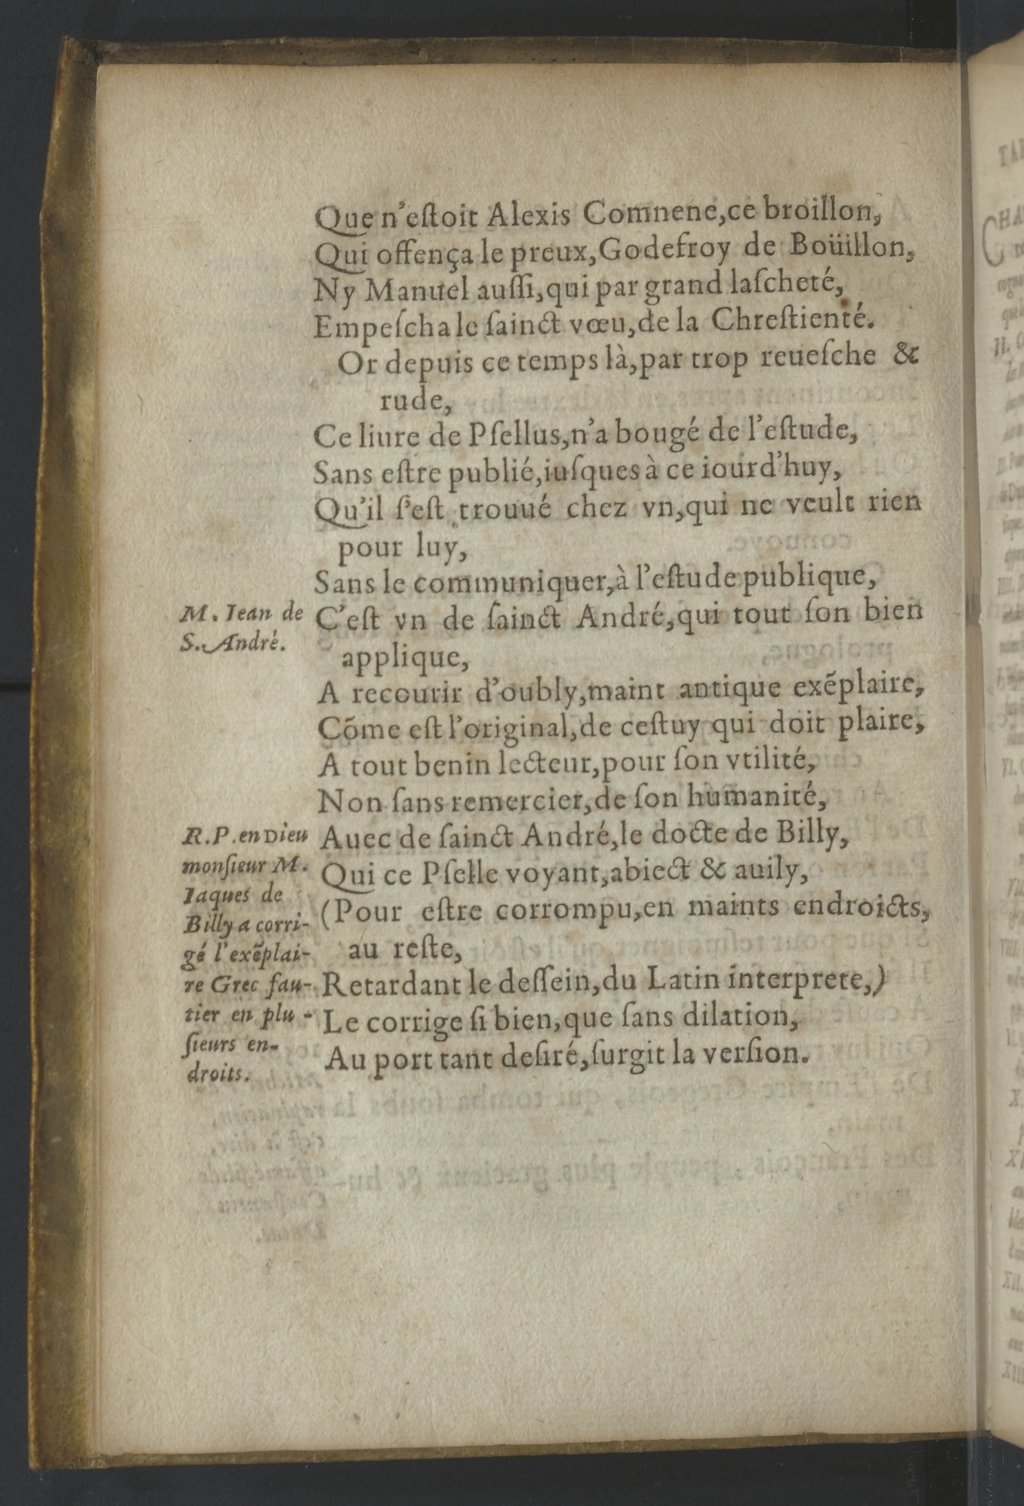 Que n'eſtoit Alexis Comnene,ce broillon,
Qui offença le preux,Godefroy de Boüillon,
Ny Manuel auſſi,qui par grand laſcheté,
Empeſcha le ſainct vœu,de la Chreſtienté.
Or depuis ce temps là,par trop reueſche &
rude,
Ce liure de Pſellus,n'a bougé de l'eſtude,
Sans eſtre publié,iuſques à ce iourd'huy,
Qu'il ſ'eſt trouué chez vn,qui ne veult rien
pour luy,
Sans le communiquer,à l'eſtude publique,
M. Iean de
S. André.
C'eſt vn de ſainct André,qui tout ſon bien
applique,
A recourir d'oubly,maint antique exẽplaire,
Cõme eſt l'original,de ceſtuy qui doit plaire,
A tout benin lecteur,pour ſon vtilité,
Non ſans remercier,de ſon humanité,
R.P. en Dieu
monſieur M.
Iaques de
Billy a corri-
gé l'exẽplai-
re Grec fau-
tier en plu-
ſieurs en-
droits.
Auec de ſainct André,le docte de Billy,
Qui ce Pſelle voyant,abiect & auily,
(Pour eſtre corrompu,en maints endroicts,
au reſte,
Retardant le deſſein,du Latin interprete,)
Le corrige ſi bien,que ſans dilation,
Au port tant deſiré,ſurgit la verſion.